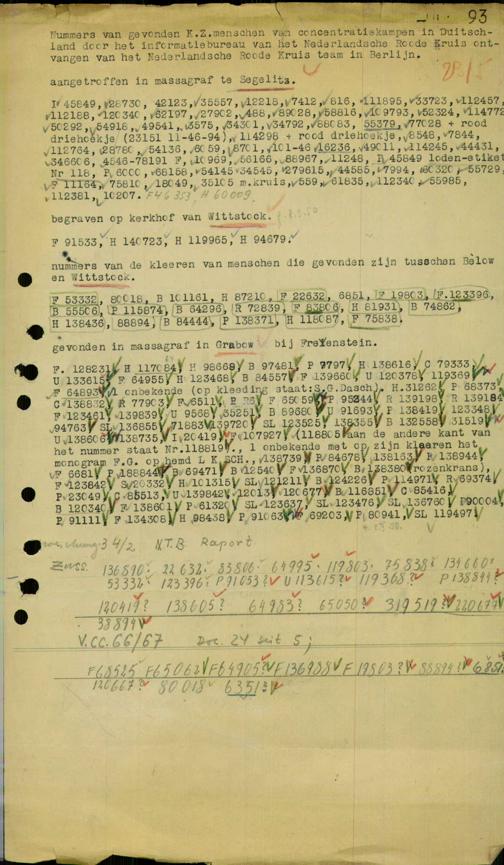 93
Nummers van gevonden K.Z.menschen van concentratiekampen in Duitsch-
land door het informatiebureau van het Nederlandsche Roode Kruis ont-
vangen van het Nederlandsche Roode Kruis team in Berlijn.
28/5
aangetroffen in massagraf te Segelitz.
I 45849, 28730, 42123, 35557, 12218, 7412, 816, 111895, 33723, 112457,
112188, 120340, 62197, 27902, 488, 89028, 58816, 109793, 52324, 114772
50292, 54918, 49541, 3575, 34301, 34792, 88083, 55379, 77028 + rood
driehoekje (23151 11-46-94), 114298 + rood driehoekje, 8548, 7844,
112764, 28780, 54136, 6059, 8701, 101-46 16236, 49011, 114245, 44431,
346606, 4546-78191 F, 10969, 56166, 88967, 11248, P 45849 loden-etiket
Nr 118, P 6000, 68158, 54145, 34545, 279615, 44585, 7994, 80320, 55729,
F 11164, 75810, 18049, 35105 m.kruis, 559, 61835, 112340, 55985,
112381, 10207. F46353 H 60009.
begraven op kerkhof van Wittstock.
F 91533, H 140723, H 119965, H 94679.
nummers van de kleeren van menschen die gevonden zijn tusschen Below
en Wittstock.
F 53332, 80018, B 101161, H 87210, F 22632, 6851, F 19803, F.123396,
B 55506, P 115874, B 64296, R 72839, F 83806, H 81931, B 74862,
H 138436, 88894, B 84444, P 138371, H 118087, F 75838.
gevonden in massagraf in Grabow bij Freyenstein.
F. 128231, H 117084, H 98669, B 97481, P 7797, H 138616, C 79333,
U 133615, F 64955, H 123468, B 84557, F 139660, U 120378, 119369,
F 64893, 1 onbekende (op kleeding staat:S.G.Dasch), H.31262, P 68373,
C 138832, R 77903, F 6511, F 65059, P 95244, R 139198, R 139184
F 123461, 139839, U 9568, 35251, B 89680, U 91693, P 138419, 123348,
94763, SL 136855, 71883, 139720, SL 123525, 138355, B 132558, 31519,
U 138606, 138735, I 20419, F 107927 (118805 aan de andere kant van
het nummer staat Nr.118819., 1 onbekende met op zijn kleeren het
monogram F.G. op hemd L K SCH., 138739, P 84678, 138163, P 138944,
F 6681, P 188844, B 69471, B 12540, F 136870, B 138380 (rozenkrans),
F 123842, S 20332, H 101315, SL 121211, B 124226, P 114971, R 69374,
P 23049, C 85513, U 139842, 12013, 120677, B 116851, C 85416,
B 120340, F 138601, P 61320, SL 123637, SL 123476, SL 136760, P 90004,
P 91111, F 134308, H 98438, P 91063, F 69203, P 80941, SL 119497.
34/2 N.T.B Raport
136890. 22632. 83806. 64995. 119803. 75838. 134660.
53332. 123396. P91053? U 113615? 119368? P 138844?
120419? 138605? 64983? 65050? 319519? 220677
38894
V.CC.66/67 Doc. 24 seit 5;
F68525 F65062 F64905? F136988 F19803? 88894? 6851
120667? 80018 6351?